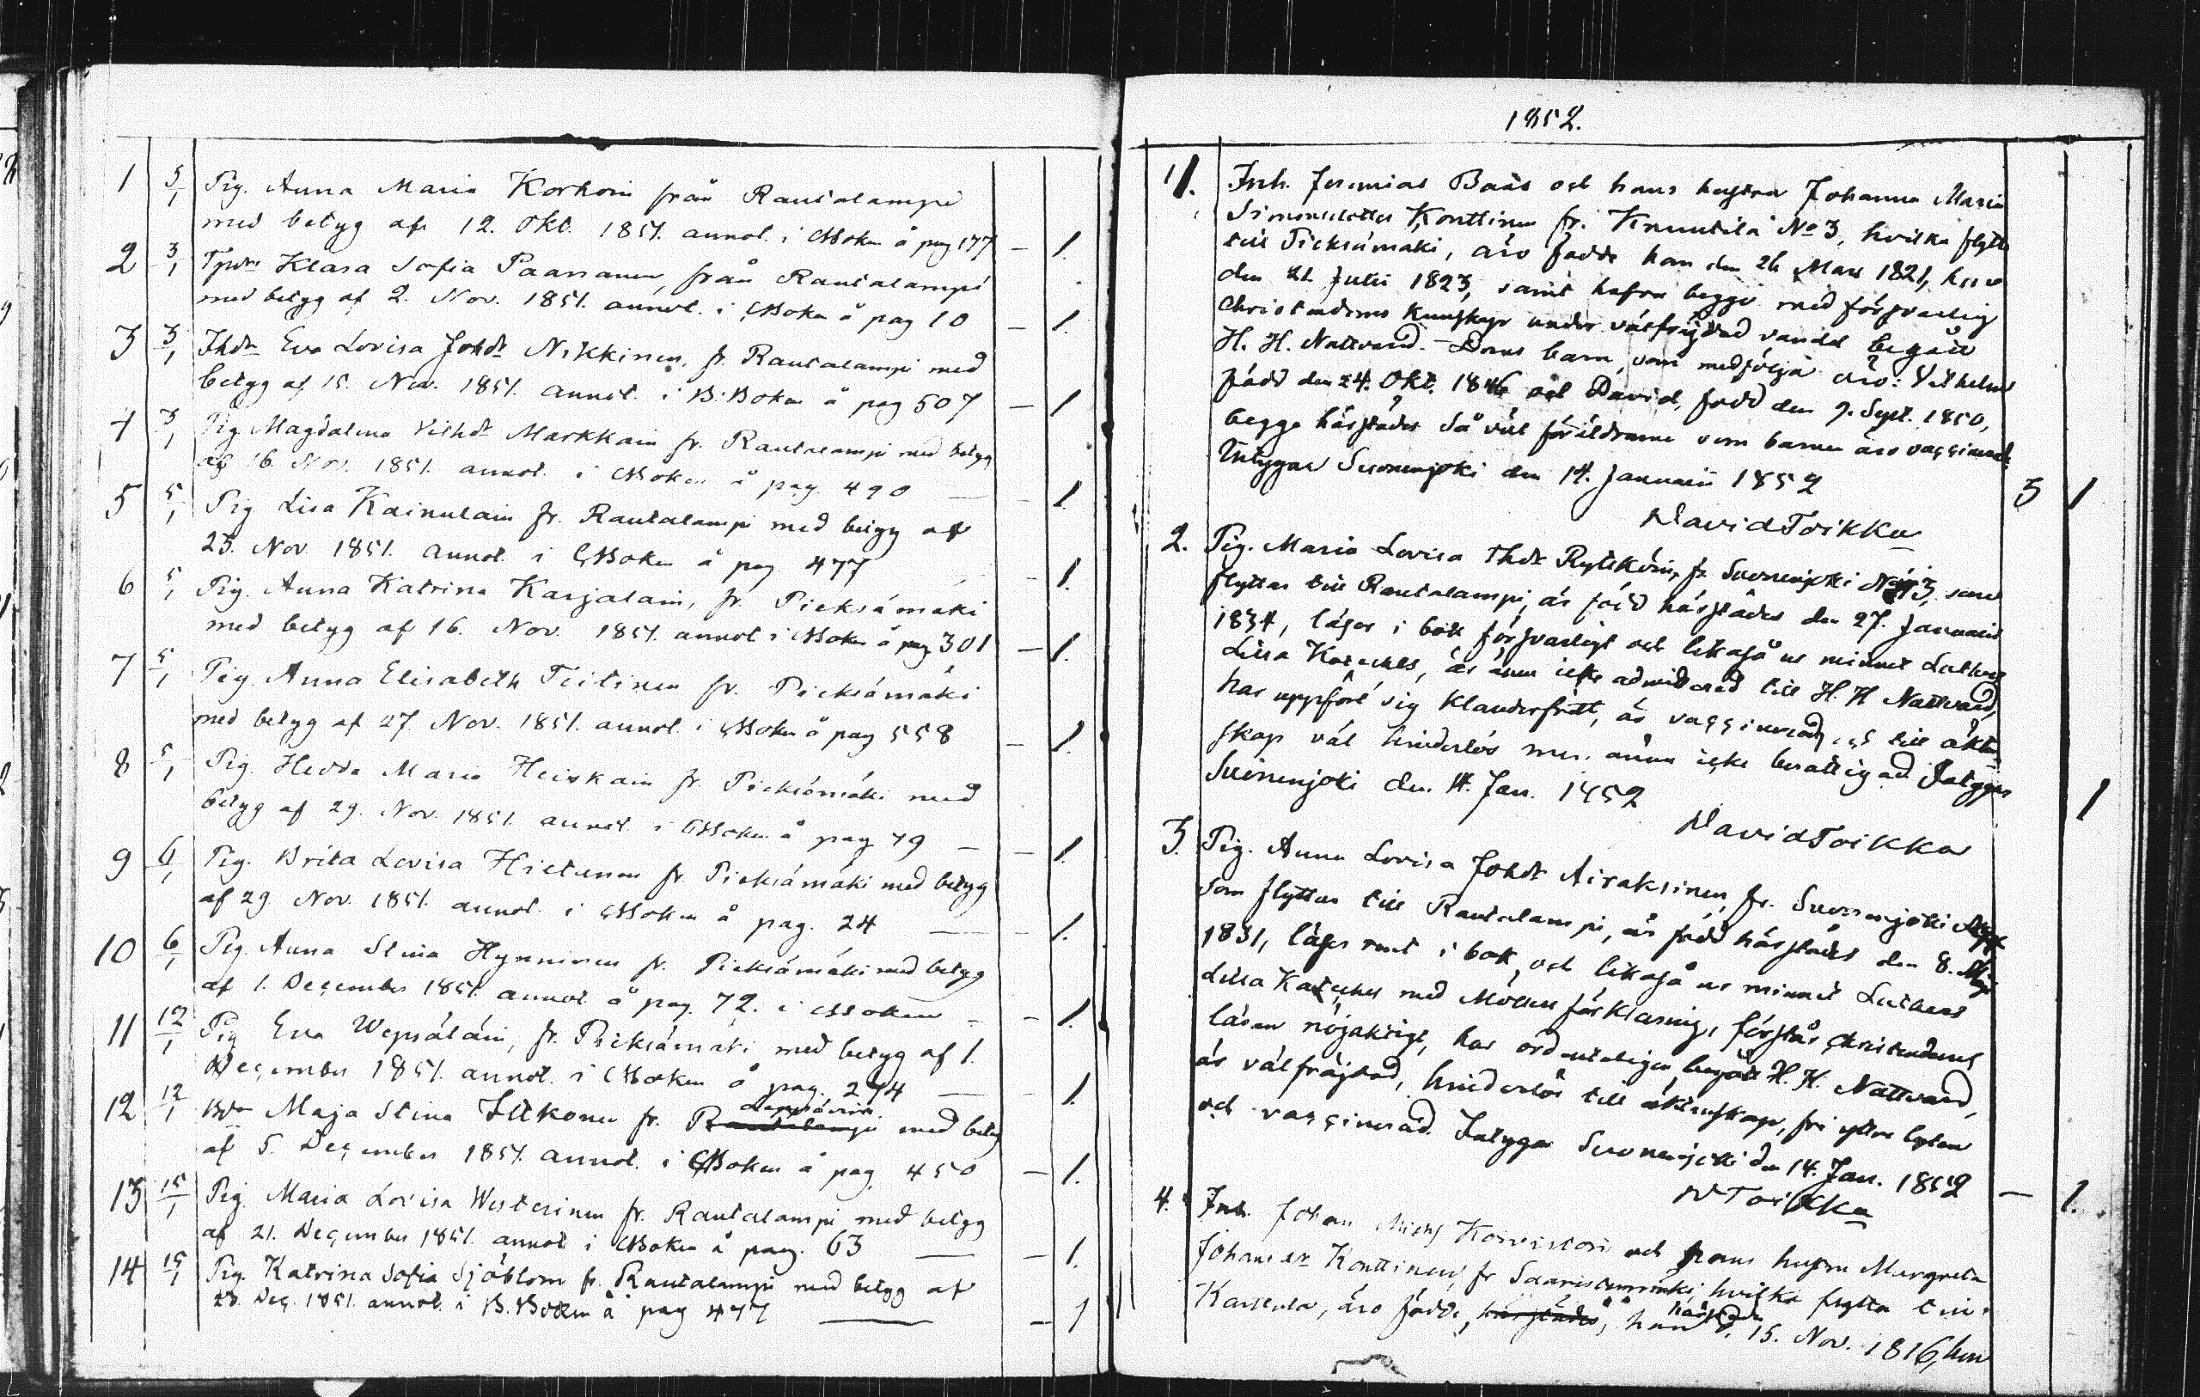 1 5/1 Pig. Anna Maria Korhoin från Rautalampi
med betyg af 12. Okt. 1851. annot. i CBoken å pag 177 — 1.
2 3/1 Klara Sofia Paananen, från Rautalampi
med betyg af 2. Nov. 1851. annot. i CBoken å pag 10 — 1.
3 3/1 Eva Lovisa Johdr Nikkinen, fr. Rautalampi med
betyg af 15. Nov. 1851. annot. i B.Boken å pag 507 — 1
4 3/1 Pig Magdalena Vilhdr Markkain fr. Rautalampi med betyg
af 16. Nov. 1851. annot. i CBoken å pag. 490 — 1
5 5/1 Pig Lisa Kainulain fr. Rautalampi med betyg af
23. Nov. 1851. annot. i CBoken å pag 477 — 1.
6 5/1 Pig. Anna Katrina Karjalain, fr. Pieksämäki
med betyg af 16. Nov. 1851. annot i CBoken å pag 301 — 1.
7 5/1 Pig. Anna Elisabeth Tiitinen fr. Pieksämäki
med betyg af 27. Nov. 1851. annot. i CBoken å pag 558 — 1.
8 5/1 Pig. Hedda Maria Heiskain fr. Pieksämäki med
betyg af 29. Nov. 1851. annot. i CBoken å pag 79 — 1.
9 6/1 Pig. Brita Lovisa Hietanen fr. Pieksämäki med betyg
af 29. Nov. 1851. annot. i CBoken å pag. 24 — 1.
10 6/1 Pig. Anna Stina Hynninen fr. Pieksämäki med betyg
af 1. December 1851. annot å pag. 72. i CBoken — 1.
11 12/1 Pig Eva Wepsäläin, fr. Pieksämäki med betyg af 1.
December 1851. annot. i CBoken å pag. 274 — 1.
12 12/1 Maja Stina Itkonen fr. Rautalampi Leppävirta med betyg
af 5. December 1851. annot. i CBoken å pag. 450 — 1.
13 15/1 Pig. Maria Lovisa Westerinen fr. Rautalampi med betyg
af 21. December 1851. annot i CBoken å pag. 63 — 1.
14 15/1 Pig. Katrina Sofia Sjöblom fr. Rautalampi med betyg af
23. Dec. 1851. annot. i B.Boken å pag 477 — 1
1852.
1. Inh. Jeremias Baas och hans hustru Johanna Maria
Simonsdotter Konttinen fr. Knuutila No 3, hvilka flytta
till Pieksämäki, äro födde han den 26 Mars 1821, hon
den 21. Julii 1823, samt hafva begge med försvarlig
Christendoms kunskap under välfrejdad vandel begått
H. H. Nattvard. – Deras barn, som medfölja äro: Vilhelm
född den 24. Okt. 1846 och David, född den 9. Sept. 1850,
begge härstädes Så väl föräldrarne som barnen äro vaccinerade.
Intygar Suonenjoki den 14. Januarii 1852 3 1
David Toikka
2. Pig. Maria Lovisa Thdr Rytköin, fr Suonenjoki No 3, som
flyttar till Rautalampi, är född härstädes den 27. Januarii
1834, läser i bok försvarligt och likaså ur minnet Luthers
Lilla Kateches, är ännu icke admitterad till H. H Nattvard,
har uppfört sig klanderfritt, är vaccinerad, och till äkten-
skap väl hinderlös men ännu icke berättigad. Intygar
Suonenjoki den 14. Jan. 1852 1
David Toikka
3. Pig. Anna Lovisa Johdr Airaksinen, fr. Suonenjoki
som flyttar till Rautalampi, är född härstädes den 8. Maji
1831, läser rent i bok, och likaså ur minnet Luthers
Lilla Kateches med Möllers förklaring, förstår Christendoms
läran nöjaktigt, har ordentligen begått H. H. Nattvard,
är välfrejdad, hinderlös till äktenskap, fri yttre lyten
och vaccinerad. Intygar Suonenjoki den 14. Jan. 1852 — 1.
D Toikka
4. Inh. Johan Michs Koivistoin och hans hustru Margreta
Johansdr Konttinen, fr Saarestenmäki, hvilka flytta till
Karttula, äro födde, härstädes, han härstädes d. 15. Nov. 1816, hon